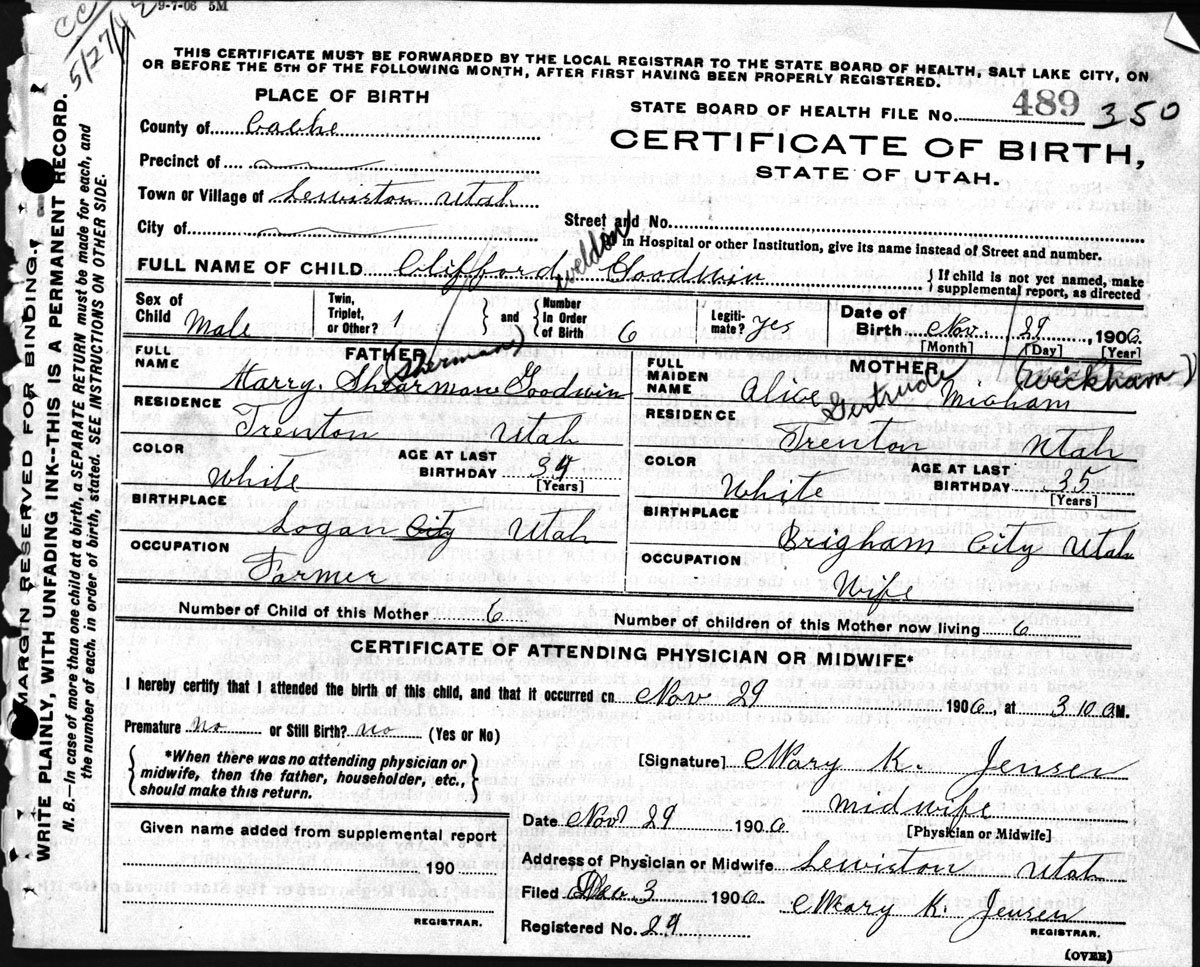 CC
5/27/42
9-7-06 5M
THIS CERTIFICATE MUST BE FORWARDED BY THE LOCAL REGISTRAR TO THE STATE BOARD OF HEALTH, SALT LAKE CITY, ON
OR BEFORE THE 5TH OF THE FOLLOWING MONTH, AFTER FIRST HAVING BEEN PROPERLY REGISTERED.
PLACE OF BIRTH
STATE BOARD OF HEALTH FILE No. 489 350
County of Cache
CERTIFICATE OF BIRTH,
STATE OF UTAH.
Precinct of
Town or Village of Lewiston Utah
Street and No.
City of
in Hospital or other Institution, give its name instead of Street and number.
FULL NAME OF CHILD Clifford Weldon Goodwin
{ If child is not yet named, make
supplemental report, as directed
Sex of Child Male
Twin, Triplet, or Other? 1
} and { Number In Order of Birth 6
Legiti-mate? yes
Date of Birth Nov. 29, 1906
[Month] [Day] [Year]
FATHER
FULL NAME Harry. Shearman Goodwin
(Sherman)
RESIDENCE
Trenton Utah
COLOR White
AGE AT LAST BIRTHDAY 39
[Years]
BIRTHPLACE
Logan City Utah
OCCUPATION
Farmer
MOTHER
FULL MAIDEN NAME Alice Gertrude Wigham (Wickham)
RESIDENCE
Trenton Utah
COLOR White
AGE AT LAST BIRTHDAY 35
[Years]
BIRTHPLACE
Brigham City Utah
OCCUPATION
Wife
Number of Child of this Mother 6
Number of children of this Mother now living 6
CERTIFICATE OF ATTENDING PHYSICIAN OR MIDWIFE*
I hereby certify that I attended the birth of this child, and that it occurred on Nov 29 1906, at 3 10 a M.
Premature no or Still Birth? no (Yes or No)
{ *When there was no attending physician or
midwife, then the father, householder, etc.,
should make this return. }
[Signature] Mary K. Jensen
midwife
[Physician or Midwife]
Date Nov 29 1906
Address of Physician or Midwife Lewiston Utah
Filed Dec 3 1906 Mary K. Jensen
REGISTRAR.
Registered No. 29
(OVER)
Given name added from supplemental report
190
REGISTRAR.
MARGIN RESERVED FOR BINDING.
WRITE PLAINLY, WITH UNFADING INK--THIS IS A PERMANENT RECORD.
N. B.—In case of more than one child at a birth, a SEPARATE RETURN must be made for each, and
the number of each. in order of birth, stated. SEE INSTRUCTIONS ON OTHER SIDE.